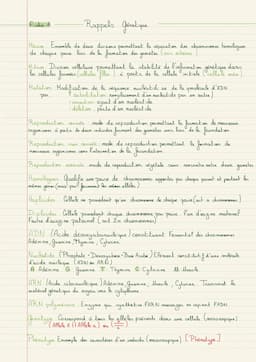 Rappels Génétique
Méiose Ensemble de deux divisions permettant la séparation des chromosomes homologues
de chaque paire lors de la formation des gamètes
Mitose Division cellulaire permettant la stabilité de l'information génétique dans
les cellules formées (cellules filles) à partir de la cellule initiale (cellule mère)
Mutation Modification de la séquence nucléotidique de la molécule d'ADN
par substitution remplacement d'un nucléotide par un autre
insertion ajout d'un nucléotide
délétion perte d'un nucléotide
Reproduction sexuée mode de reproduction permettant la formation de nouveaux
organismes à partir de deux individus formant des gamètes avec lieu de la fécondation
Reproduction non sexuée mode de reproduction permettant la formation de
nouveaux organismes sans l'intervention de la fécondation
Reproduction mode de reproduction végétale sans rencontre entre deux gamètes
Homologues Qualifie une paire de chromosomes apportés par chaque parent et portant les
mêmes gènes (mais pas forcément les mêmes allèles)
Haploïdes Cellule ne possédant qu'un chromosome de chaque paire (soit n chromosomes)
Diploïdes Cellule possédant chaque chromosome par paire l'un d'origine maternel
l'autre d'origine paternel (soit 2n chromosomes)
ADN (Acide désoxyribonucléique) constituant l'essentiel du chromosome
Adénine, Guanine, Thymine, Cytosine
Nucléotide (Phosphate - Désoxyribose - Base Azotée) Élément constitutif d'une molécule
d'acide nucléique (ADN ou ARN)
A Adénine G Guanine T Thymine C Cytosine U Uracile
ARN (Acide ribonucléique) Adénine, Guanine, Uracile, Cytosine, Transmet le
matériel génétique du noyau vers le cytoplasme
ARN polymérase Enzyme qui synthétise l'ARN messager en copiant l'ADN
Génotype Correspond à tous les allèles présents dans une cellule
Phénotype Ensemble des caractères d'un individu (macroscopique) [Phénotype]